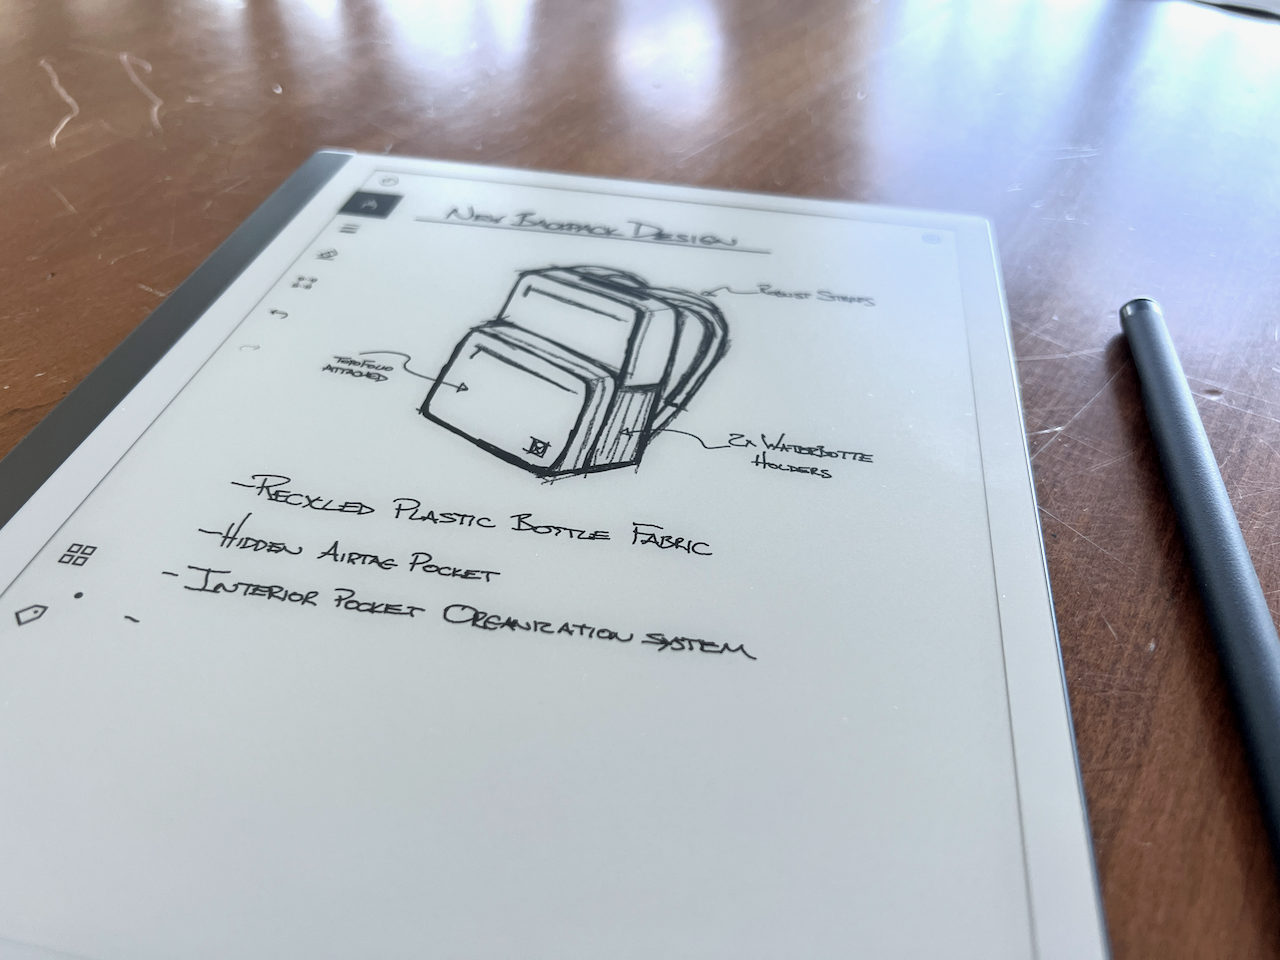 New Backpack Design
Robust Straps
TopoFolio
Attached
2x Waterbottle
Holders
- Recycled Plastic Bottle Fabric
- Hidden Airtag Pocket
- Interior Pocket Organization System